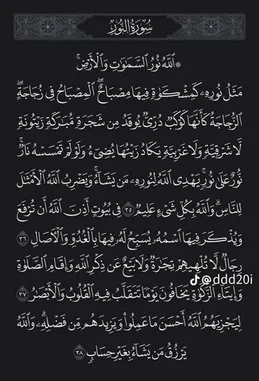 سُورَةُ النُّورِ
۞ ٱللَّهُ نُورُ ٱلسَّمَٰوَٰتِ وَٱلْأَرْضِۚ
مَثَلُ نُورِهِۦ كَمِشْكَوٰةٍ فِيهَا مِصْبَاحٌۖ ٱلْمِصْبَاحُ فِى زُجَاجَةٍۖ
ٱلزُّجَاجَةُ كَأَنَّهَا كَوْكَبٌ دُرِّىٌّ يُوقَدُ مِن شَجَرَةٍ مُّبَٰرَكَةٍ زَيْتُونَةٍ
لَّا شَرْقِيَّةٍ وَلَا غَرْبِيَّةٍ يَكَادُ زَيْتُهَا يُضِىٓءُ وَلَوْ لَمْ تَمْسَسْهُ نَارٌۚ
نُّورٌ عَلَىٰ نُورٍۗ يَهْدِى ٱللَّهُ لِنُورِهِۦ مَن يَشَآءُۚ وَيَضْرِبُ ٱللَّهُ ٱلْأَمْثَٰلَ
لِلنَّاسِۗ وَٱللَّهُ بِكُلِّ شَىْءٍ عَلِيمٌ ٣٥ فِى بُيُوتٍ أَذِنَ ٱللَّهُ أَن تُرْفَعَ
وَيُذْكَرَ فِيهَا ٱسْمُهُۥ يُسَبِّحُ لَهُۥ فِيهَا بِٱلْغُدُوِّ وَٱلْءَاصَالِ ٣٦
رِجَالٌ لَّا تُلْهِيهِمْ تِجَٰرَةٌ وَلَا بَيْعٌ عَن ذِكْرِ ٱللَّهِ وَإِقَامِ ٱلصَّلَوٰةِ
@ddd20i
وَإِيتَآءِ ٱلزَّكَوٰةِ يَخَافُونَ يَوْمًا تَتَقَلَّبُ فِيهِ ٱلْقُلُوبُ وَٱلْأَبْصَٰرُ ٣٧
لِيَجْزِيَهُمُ ٱللَّهُ أَحْسَنَ مَا عَمِلُوا۟ وَيَزِيدَهُم مِّن فَضْلِهِۦۗ وَٱللَّهُ
يَرْزُقُ مَن يَشَآءُ بِغَيْرِ حِسَابٍ ٣٨